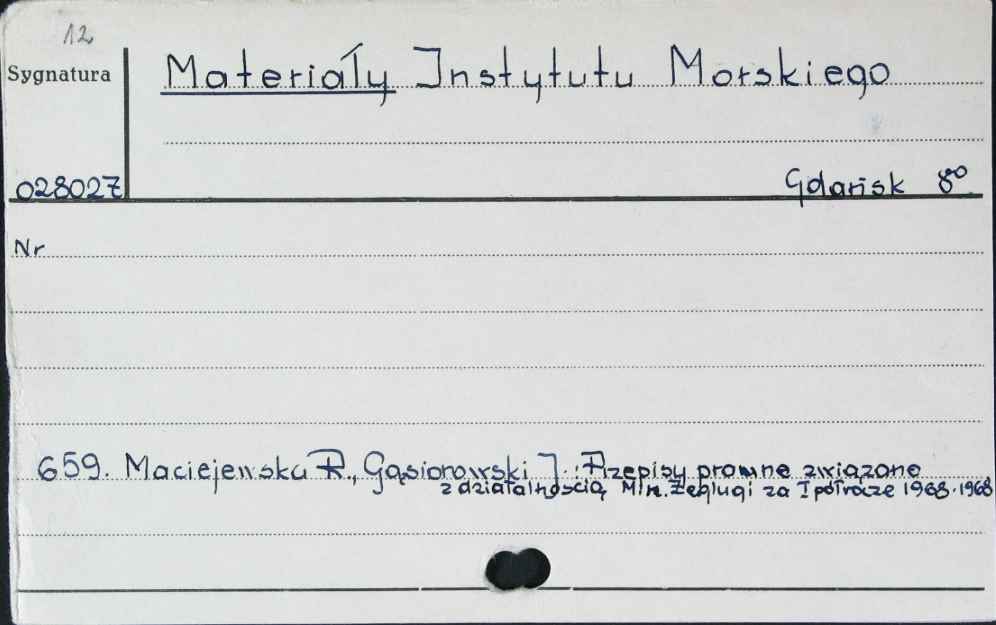 12
Sygnatura
Materiały Instytutu Morskiego
028027
Gdańsk 8°
Nr
659. Maciejewska R., Gąsiorowski J.: Przepisy prawne związane
z działalnością Min. Żeglugi za I półrocze 1968. 1968